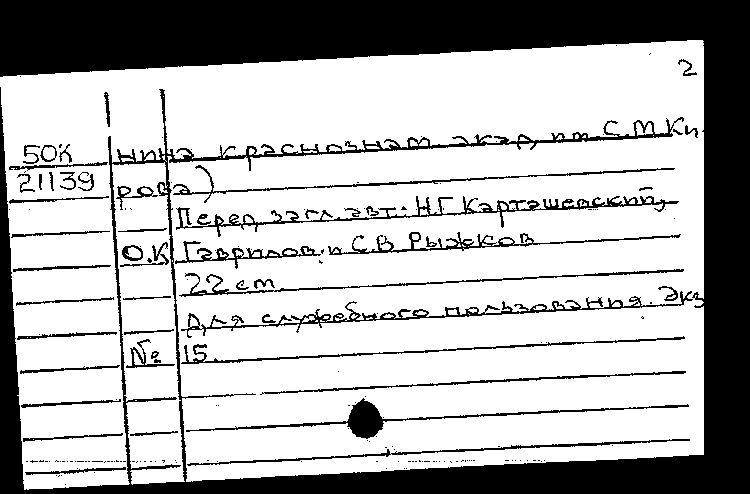 2
50К нина краснознам акад им С.М.Ки-
21139 рова)
Перед загл. авт.: Н.Г Карташевский,
О.К Гаврилов и С.В Рыжков
22 cm.
Для служебного пользования. Экз
№ 15.